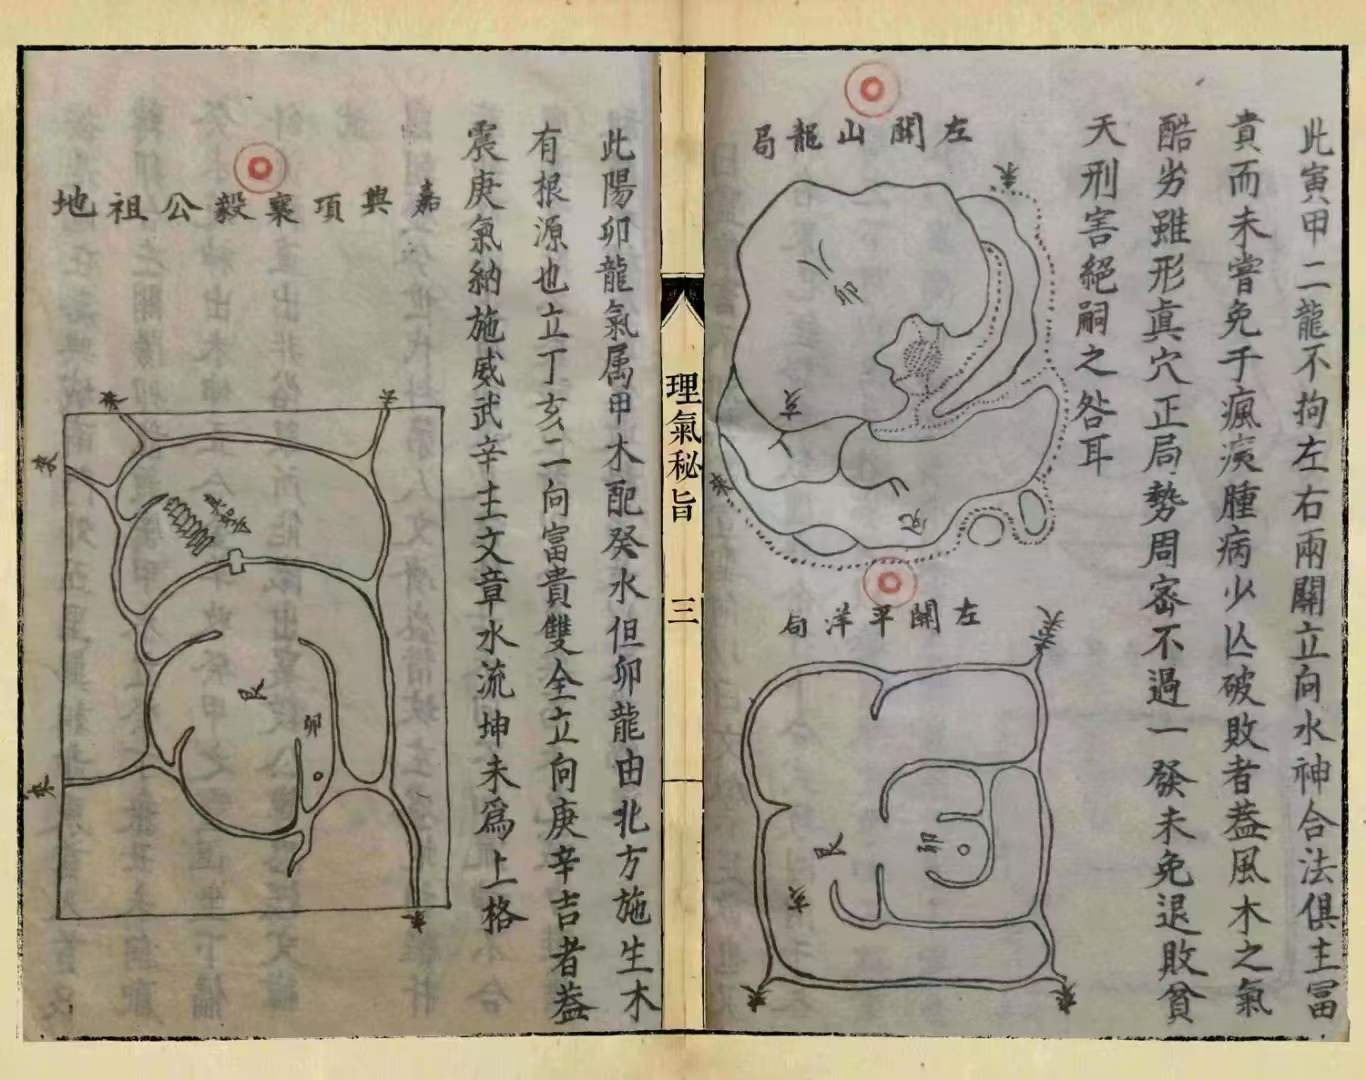 此寅甲二龍不拘左右兩關立向水神合法俱主冨
貴而未嘗免于瘋痍腫病少亾破敗者葢風木之氣
酷劣雖形眞穴正局勢周宻不過一發未免退敗貧
天刑害絕嗣之咎耳
左關山龍局
來
卯
亥
來
兌
左關平洋局
來
艮
卯
亥
來
來
理氣秘旨
三
此陽卯龍氣属甲木配癸水但卯龍由北方施生木
有根源也立丁亥二向富貴雙全立向庚辛吉者葢
震庚氣納施威武辛主文章水流坤未爲上格
嘉興項襄毅公祖地
來
來
來
艮
卯
來